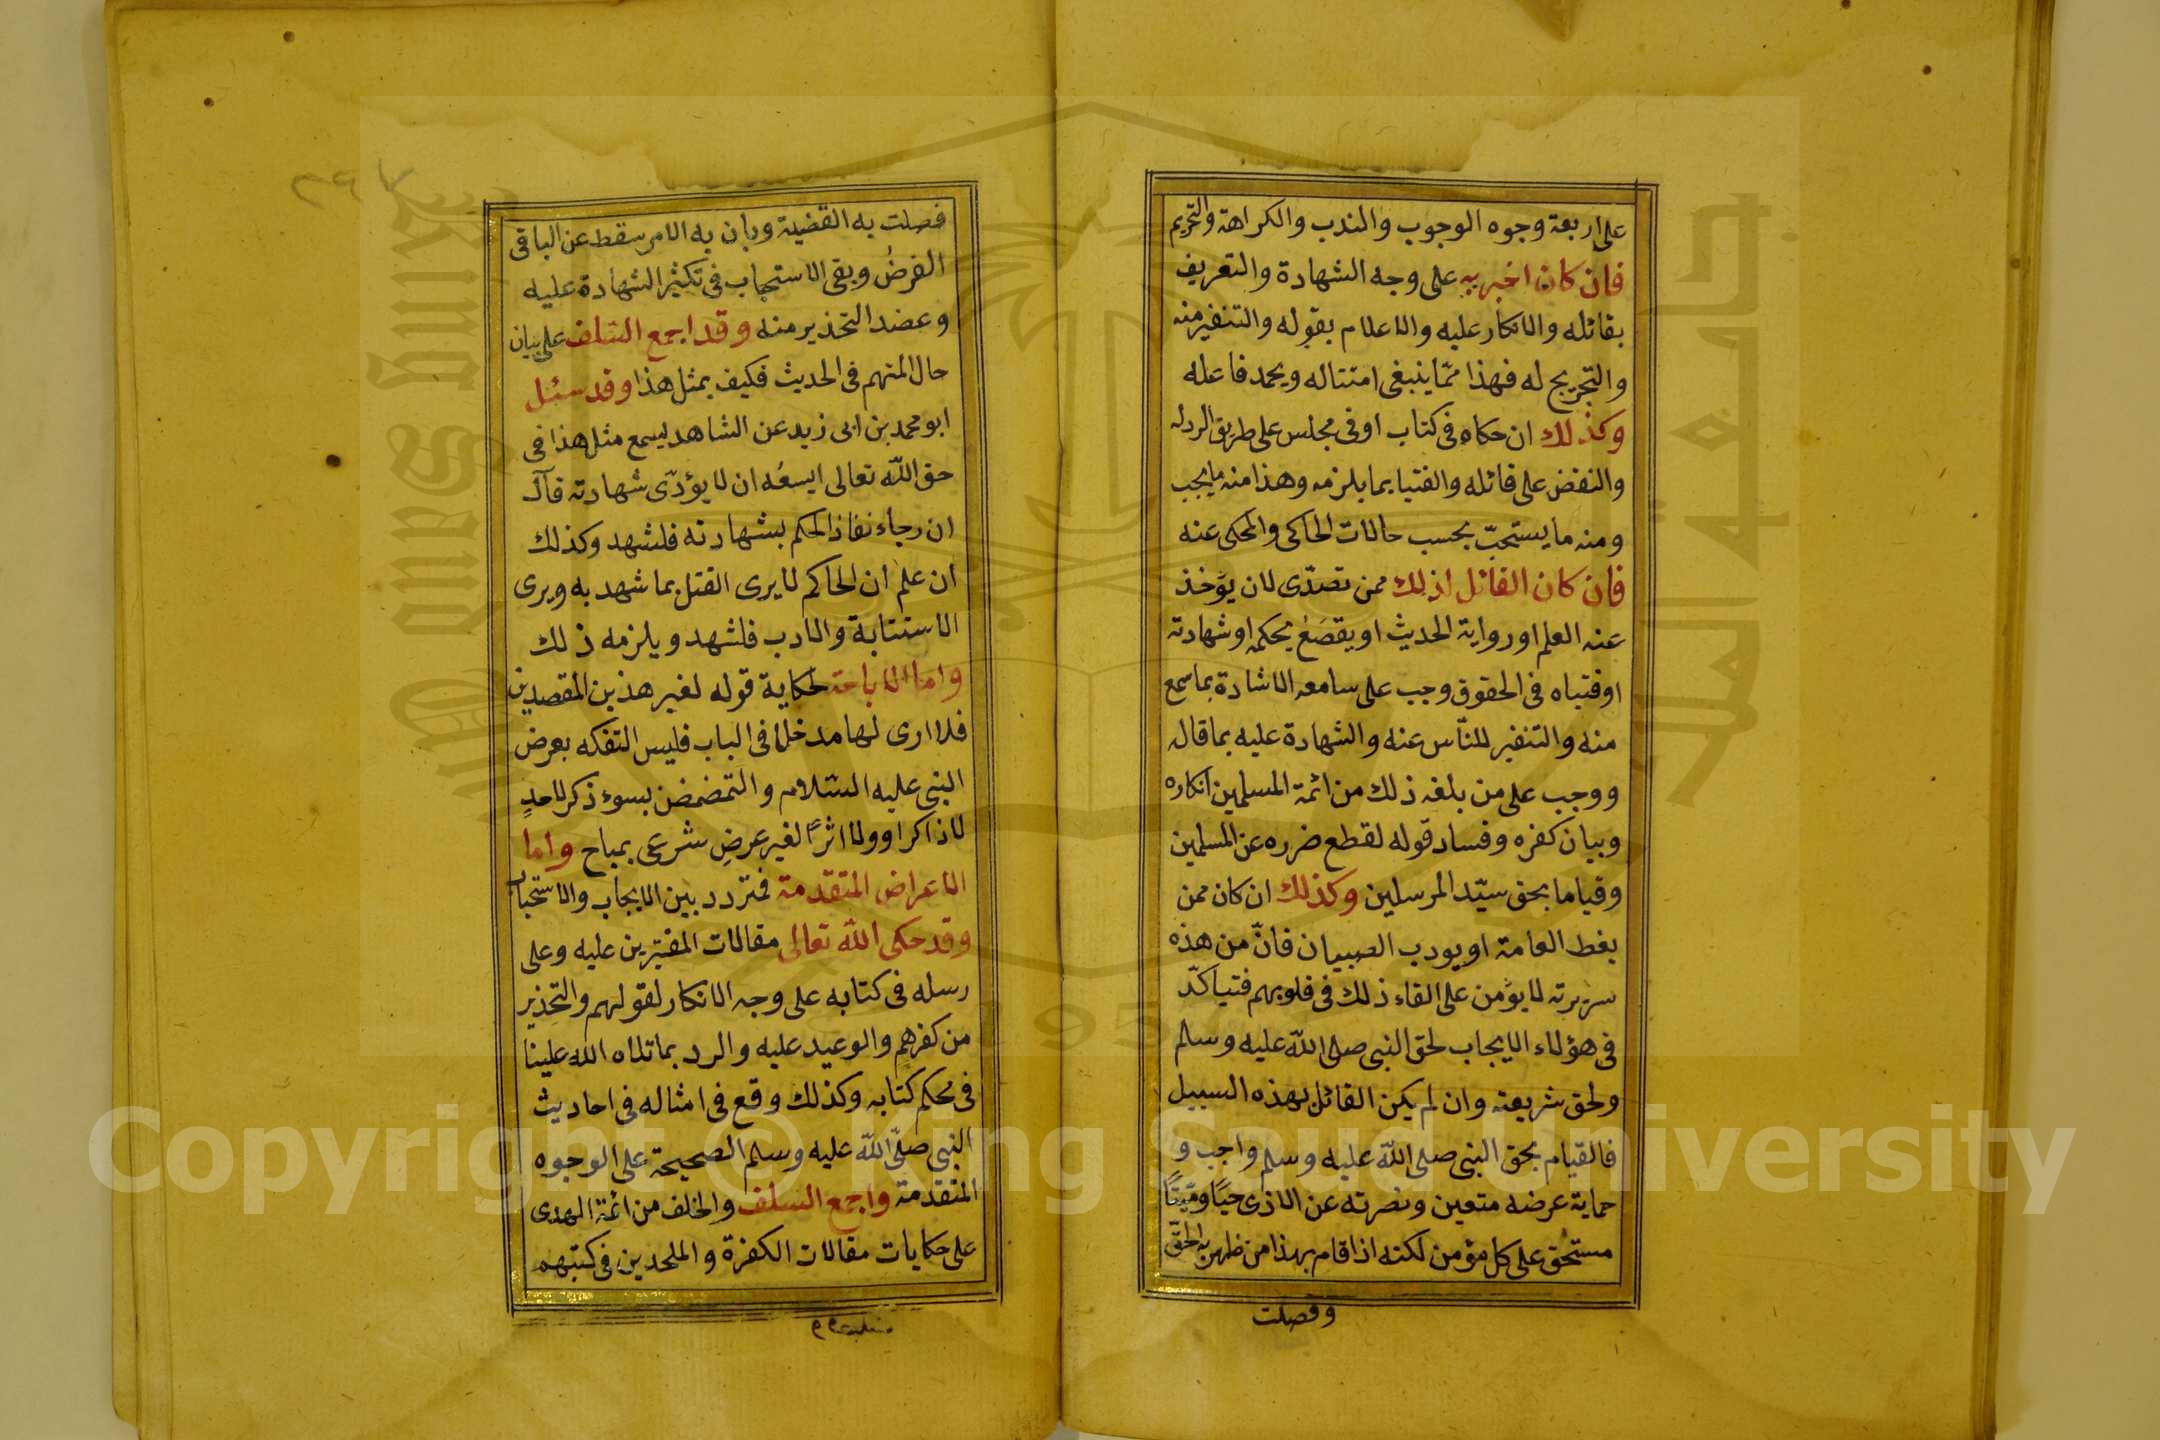 على اربعة وجوه الوجوب والندب والكراهة والتحريم
فان كان اخبر به على وجه الشهادة والتعريف
بقائله والانكار عليه والاعلام بقوله والتنفير منه
والتجريح له فهذا ممّا ينبغى امتثاله ويحمد فاعله
وكذلك ان حكاه فى كتاب اوفى مجلس على طريق الرد له
والنقض على قائله والفتيا بما يلزمه وهذا منه ما يجب
ومنه ما يستحبّ بحسب حالات الحاكى والمحكى عنه
فان كان القائل لذلك ممن تصدّى لان يؤخذ
عنه العلم او رواية الحديث او يقطع بحكمه او شهادته
او فتياه فى الحقوق وجب على سامعه الاشادة بما سمع
منه والتنفير للنّاس عنه والشهادة عليه بما قاله
ووجب على من بلغه ذلك من ائمة المسلمين انكاره
وبيان كفره وفساد قوله لقطع ضرره عن المسلمين
وقياما بحق سيّد المرسلين وكذلك ان كان ممن
يعظ العامة او يودب الصبيان فانّ من هذه
سريرته لا يؤمن على القاء ذلك فى قلوبهم فتياكّد
فى هؤلاء الايجاب لحق النبى صلى اللّه عليه وسلم
ولحق شريعته وان لم يكن القائل بهذه السبيل
فالقيام بحق النبى صلى اللّه عليه وسلم واجب و
حماية عرضه متعين ونصرته عن الاذى حيًا وميّتًا
مستحق على كل مؤمن لكنه اذا قام بهذا من ظهر به الحقّ
وفصلت
فصلت به القضية وبان به الامر سقط عن الباقى
الفرضُ وبقى الاستحباب فى تكثير الشهادة عليه
وعضد التحذير منه وقد اجمع السّلف على بيان
حال المتهم فى الحديث فكيف بمثل هذا وقد سئل
ابو محمد بن ابى زيد عن الشاهد يسمع مثل هذا فى
حق اللّه تعالى ايسعُه ان لا يؤدّى شهادته قال
ان رجاء نفاذ الحكم بشهادته فلشهد وكذلك
ان علم ان الحاكم لا يرى القتل بما شهد به ويرى
الاستتابة والادب فلشهد ويلزمه ذلك
واما الاباحة لحكاية قوله لغير هذين المقصدين
فلا ارى لها مدخلا فى الباب فليس التفكه بعرض
النبى عليه السّلام والتمضمض بسوء ذكر لاحدٍ
لا ذاكرا وولا اثرًا لغير عرض شرعى بمباح واما
الاعراض المتقدمة فمتردد بين الايجاب والاستحباب
وقد حكى اللّه تعالى مقالات المفترين عليه وعلى
رسله فى كتابه على وجه الانكار لقولهم والتحذير
من كفرهم والوعيد عليه والرد بما تلاه اللّه علينا
فى محكم كتابه وكذلك وقع فى امثاله فى احاديث
النبى صلّى اللّه عليه وسلم الصحيحة على الوجوه
المتقدمة واجمع السلف والخلف من ائمة الهدى
على حكايات مقالات الكفرة والملحدين فى كتبهم
Copyright © King Saud University
King Saud University
جامعة الملك